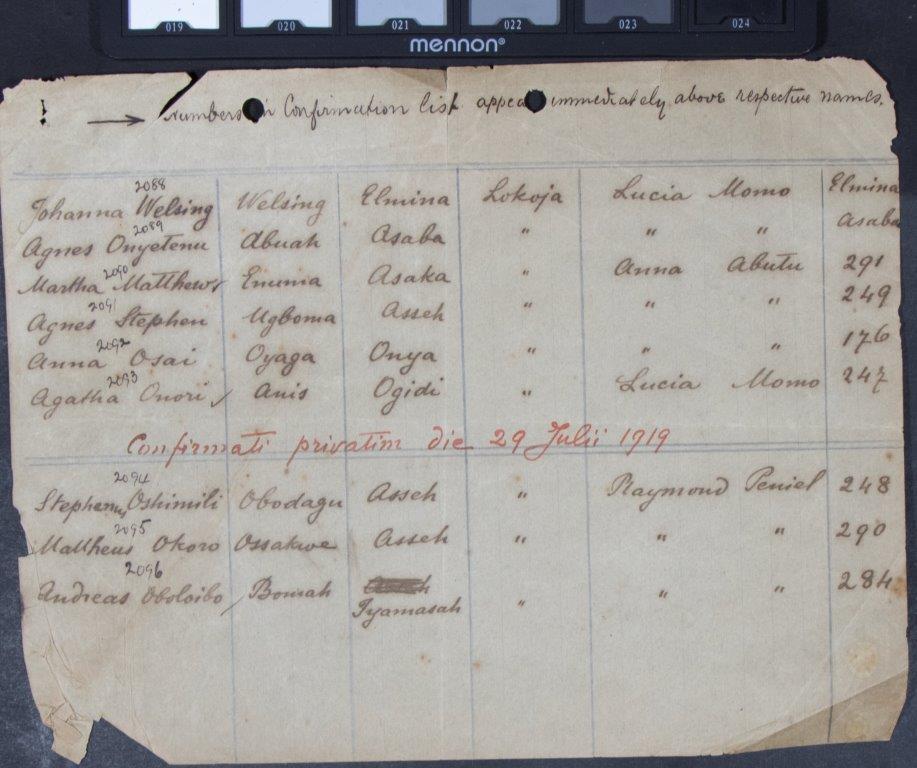 019 020 021 022 023 024
mennon®
→ Numbers in Confirmation list appear immediately above respective names.
2088
Johanna Welsing Welsing Elmina Lokoja Lucia Momo Elmina
2089
Agnes Onyetenu Abuah Asaba " " " Asaba
2090
Martha Matthews Enuma Asaka " Anna Abutu 291
2091
Agnes Stephen Ugboma Asseh " " " 249
2092
Anna Osai Oyaga Onya " " " 176
2093
Agatha Onori ✓ Anis Ogidi " Lucia Momo 247
Confirmati privatim die 29 Julii 1919
2094
Stephanus Oshimili Obodagu Asseh " Raymond Peniel 248
2095
Mattheus Okoro Ossakwe Asseh " " " 290
2096
Andreas Oboloibo Bomah Iyamasah " " " 284